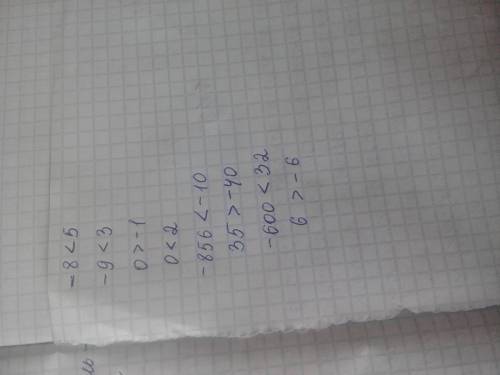 -8 < 5
-9 < 3
0 > -1
0 < 2
-856 < -10
35 > -40
-600 < 32
6 > -6